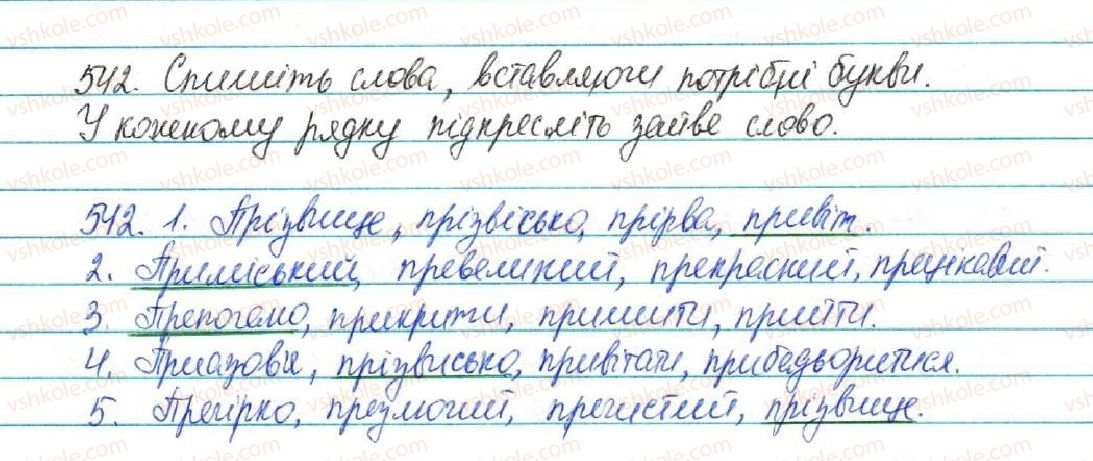 542. Спишіть слова, вставляючи потрібні букви.
У кожному рядку підкресліть зайве слово.
542. 1. Прізвище, прізвісько, прірва, привіт.
2. Приміський, превеликий, прекрасний, прецікавий.
3. Препогано, прикрити, пришити, прийти.
4. Приазов'я, прізвисько, привітати, прибедьоритися.
5. Прегірко, премогий, пречистий, прізвище.